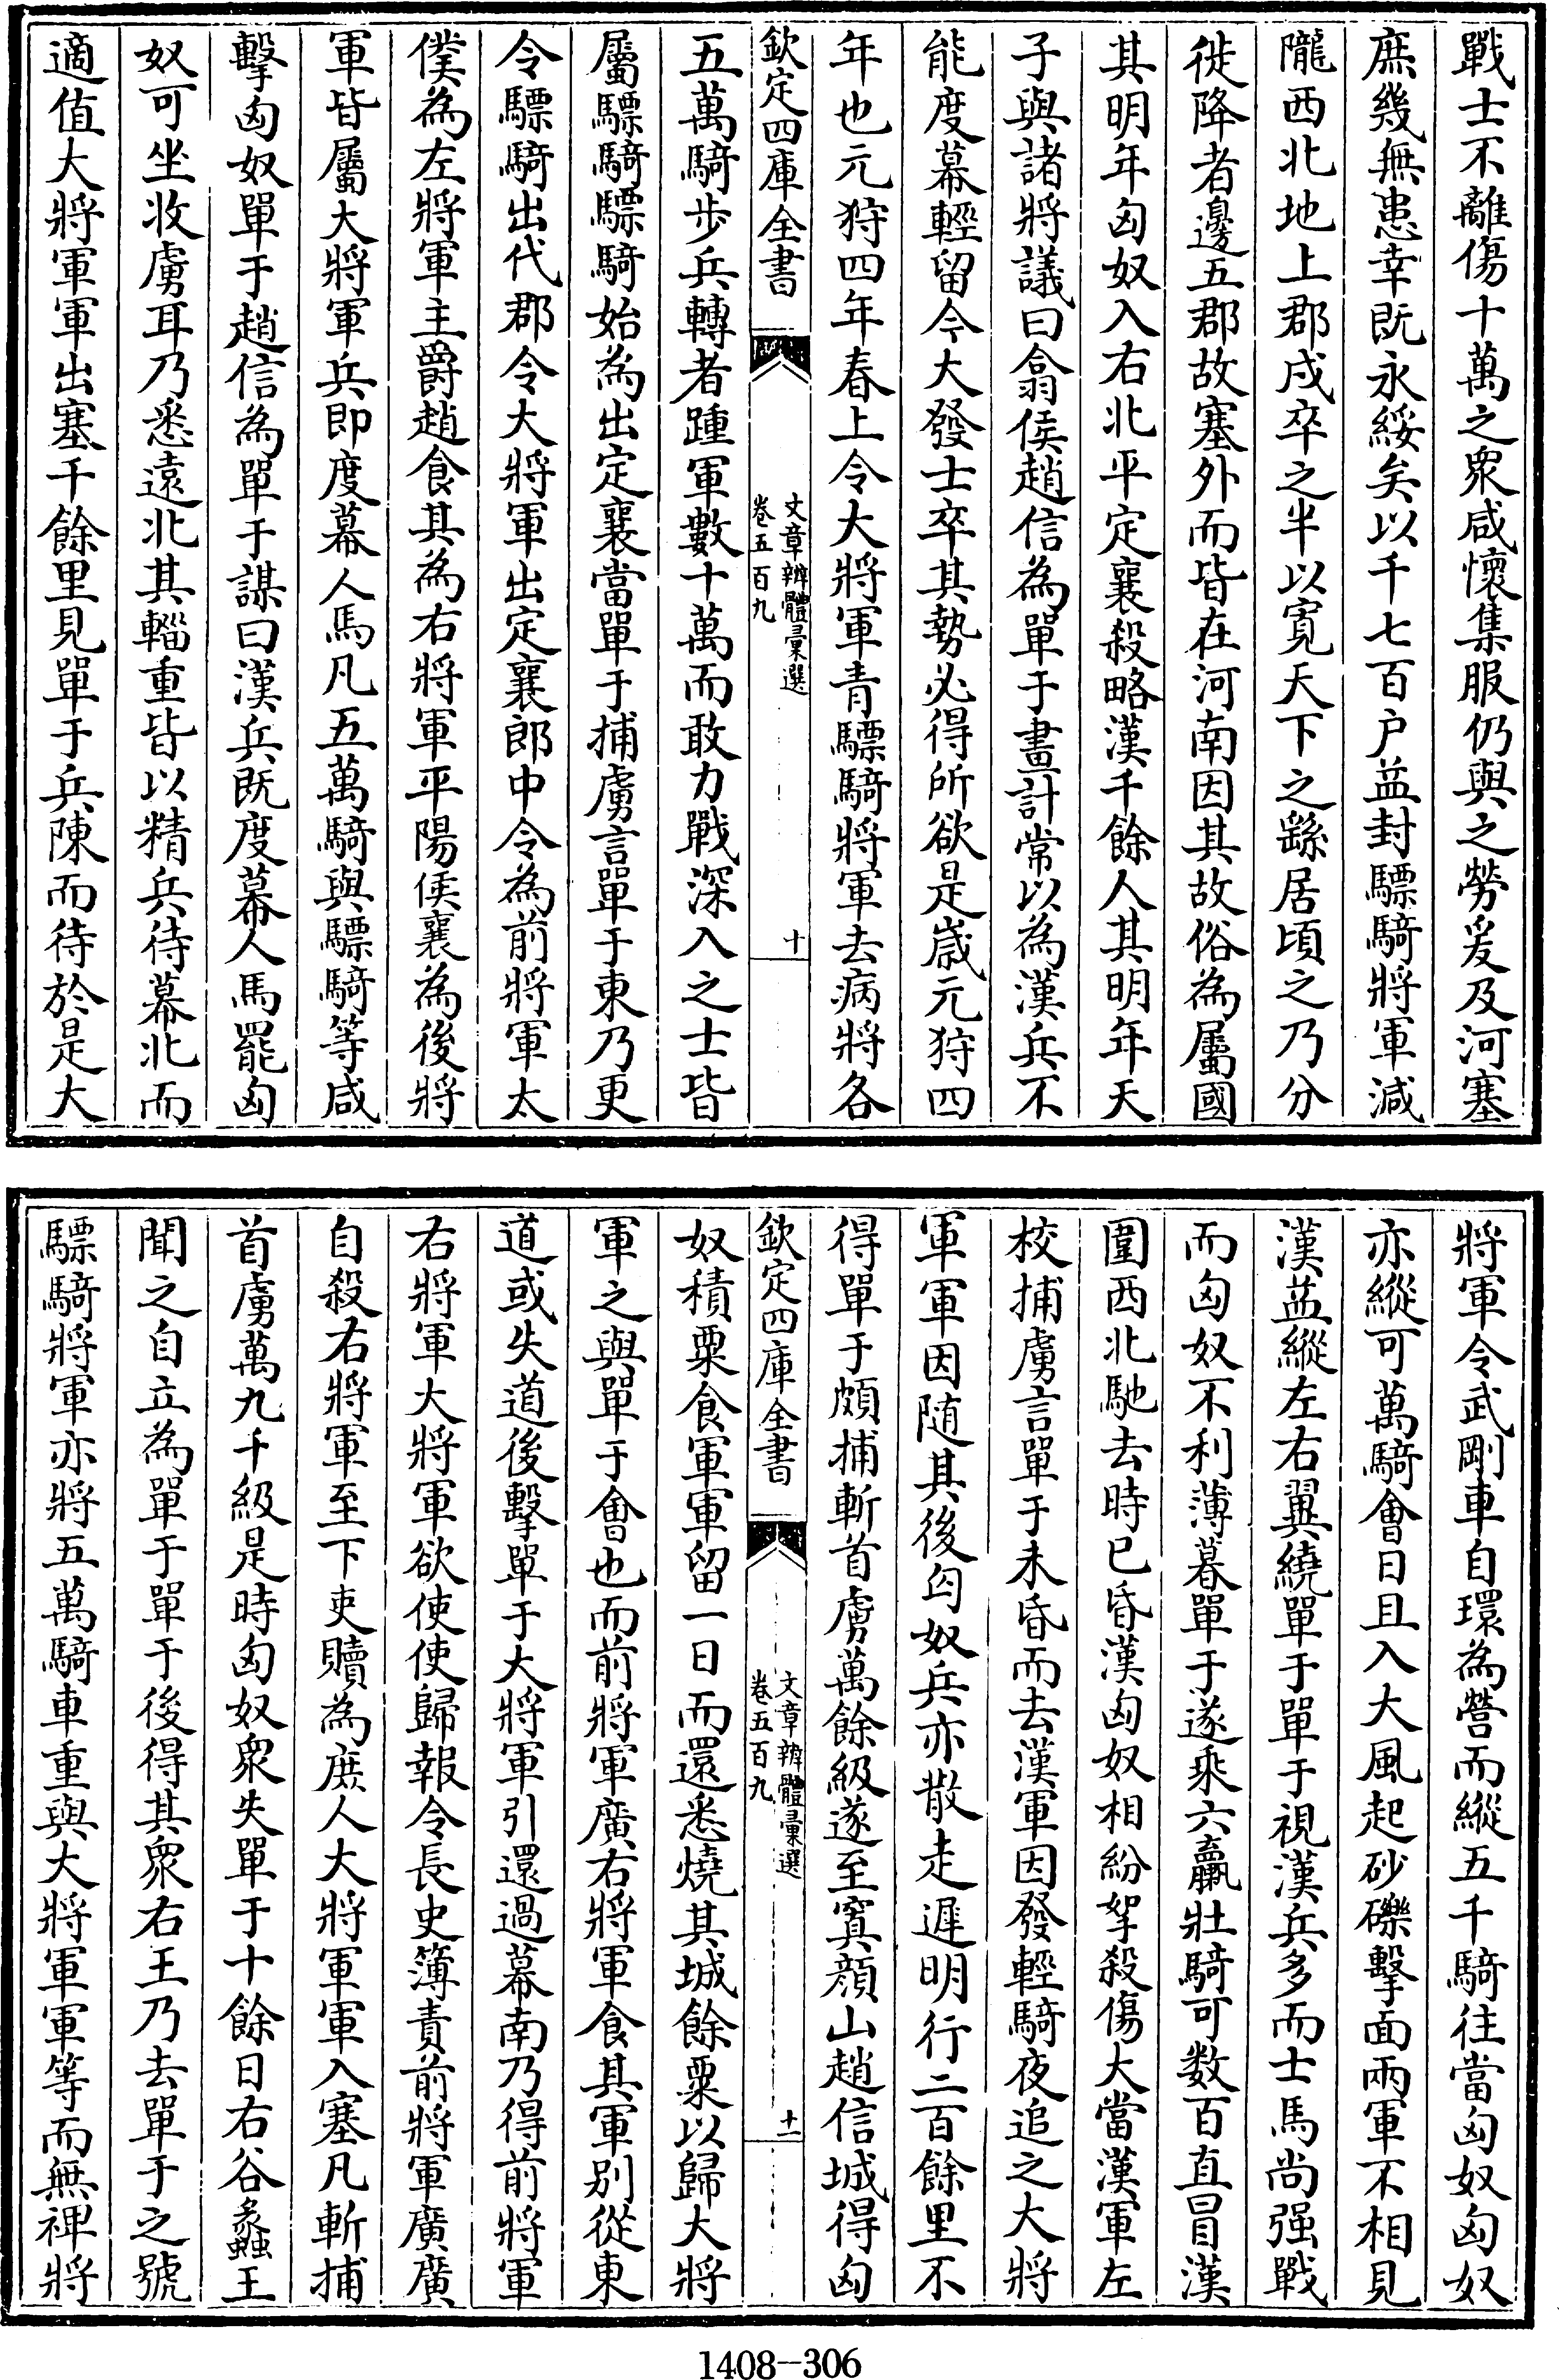 戰士不離傷十萬之衆咸懷集服仍與之勞爰及河塞
庶幾無患幸既永綏矣以千七百户益封驃騎將軍減
隴西北地上郡戍卒之半以寛天下之繇居頃之乃分
徙降者邊五郡故塞外而皆在河南因其故俗為屬國
其明年匈奴入右北平定襄殺略漢千餘人其明年天
子與諸將議曰翕侯趙信為單于畫計常以為漢兵不
能度幕輕留今大發士卒其勢必得所欲是嵗元狩四
年也元狩四年春上令大將軍青驃騎將軍去病將各
欽定四庫全書
文章辨體彚選
卷五百九
十
五萬騎步兵轉者踵軍數十萬而敢力戰深入之士皆
屬驃騎驃騎始為出定襄當單于捕虜言單于東乃更
令驃騎出代郡令大將軍出定襄郎中令為前將軍太
僕為左將軍主爵趙食其為右將軍平陽侯襄為後將
軍皆屬大將軍兵即度幕人馬凡五萬騎與驃騎等咸
擊匈奴單于趙信為單于謀曰漢兵既度幕人馬罷匈
奴可坐收虜耳乃悉遠北其輜重皆以精兵待幕北而
適值大將軍軍出塞千餘里見單于兵陳而待於是大
將軍令武剛車自環為營而縱五千騎往當匈奴匈奴
亦縱可萬騎會日且入大風起砂礫擊面兩軍不相見
漢益縱左右翼繞單于單于視漢兵多而士馬尚强戰
而匈奴不利薄暮單于遂乘六驘壯騎可数百直冒漢
圍西北馳去時已昏漢匈奴相紛挐殺傷大當漢軍左
校捕虜言單于未昏而去漢軍因發輕騎夜追之大將
軍軍因随其後匈奴兵亦散走遲明行二百餘里不
得單于頗捕斬首虜萬餘級遂至窴顔山趙信城得匈
欽定四庫全書
文章辨體彚選
卷五百九
十一
奴積粟食軍軍留一日而還悉燒其城餘粟以歸大將
軍之與單于會也而前將軍廣右將軍食其軍别從東
道或失道後擊單于大將軍引還過幕南乃得前將軍
右將軍大將軍欲使使歸報令長史簿責前將軍廣廣
自殺右將軍至下吏贖為庶人大將軍軍入塞凡斬捕
首虜萬九千級是時匈奴衆失單于十餘日右谷蠡王
聞之自立為單于單于後得其衆右王乃去單于之號
驃騎將軍亦將五萬騎車重與大將軍軍等而無裨將
1408-306